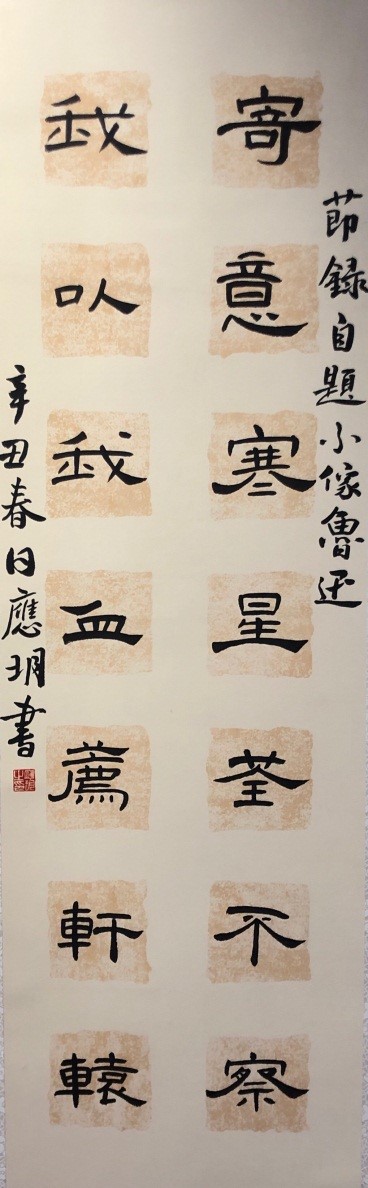 節錄自題小像魯迅
寄意寒星荃不察
我㕥我血薦軒轅
辛丑春日應玥書